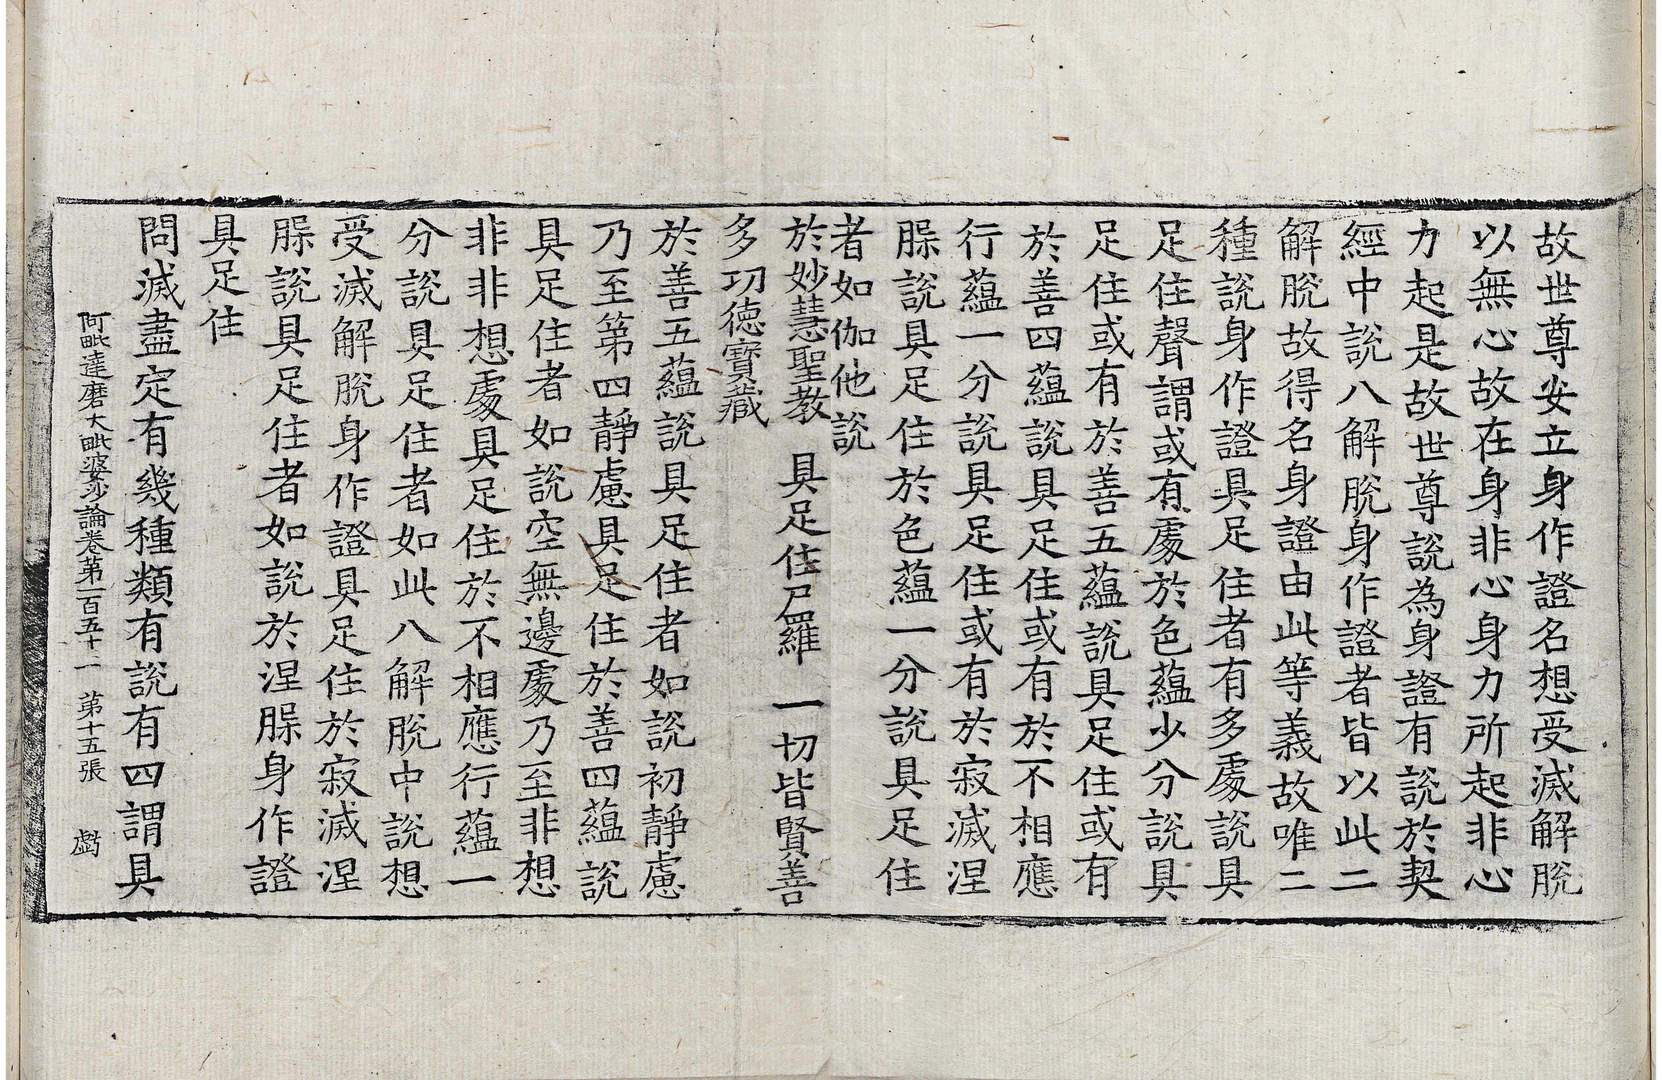 故世尊安立身作證名想受滅解脫
以無心故在身非心身力所起非心
力起是故世尊說為身證有說於契
經中說八解脫身作證者皆以此二
解脫故得名身證由此等義故唯二
種說身作證具足住者有多處說具
足住聲謂或有處於色蘊少分說具
足住或有於善五蘊說具足住或有
於善四蘊說具足住或有於不相應
行蘊一分說具足住或有於寂滅涅
槃說具足住於色蘊一分說具足住
者如伽他說
於妙慧聖教　具足住尸羅　一切皆賢善
多功德寶藏
於善五蘊說具足住者如說初靜慮
乃至第四靜慮具足住於善四蘊說
具足住者如說空無邊處乃至非想
非非想處具足住於不相應行蘊一
分說具足住者如此八解脫中說想
受滅解脫身作證具足住於寂滅涅
槃說具足住者如說於涅槃身作證
具足住
問滅盡定有幾種類有說有四謂具
阿毗達磨大毗婆沙論卷第一百五十二　第十五張